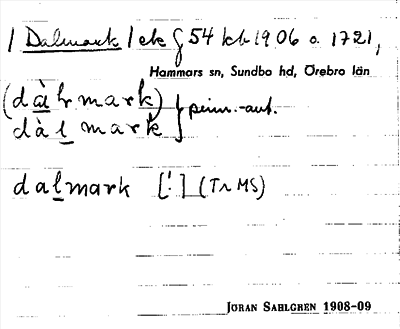 / Dalmark / ek § 54 kb 1906 o. 1721,
Hammars sn, Sundbo hd, Örebro län
(dàlrmark)
dàl mark } peinn.-aut.
dalmark [!] (Tr MS)
JÖRAN SAHLGREN 1908-09